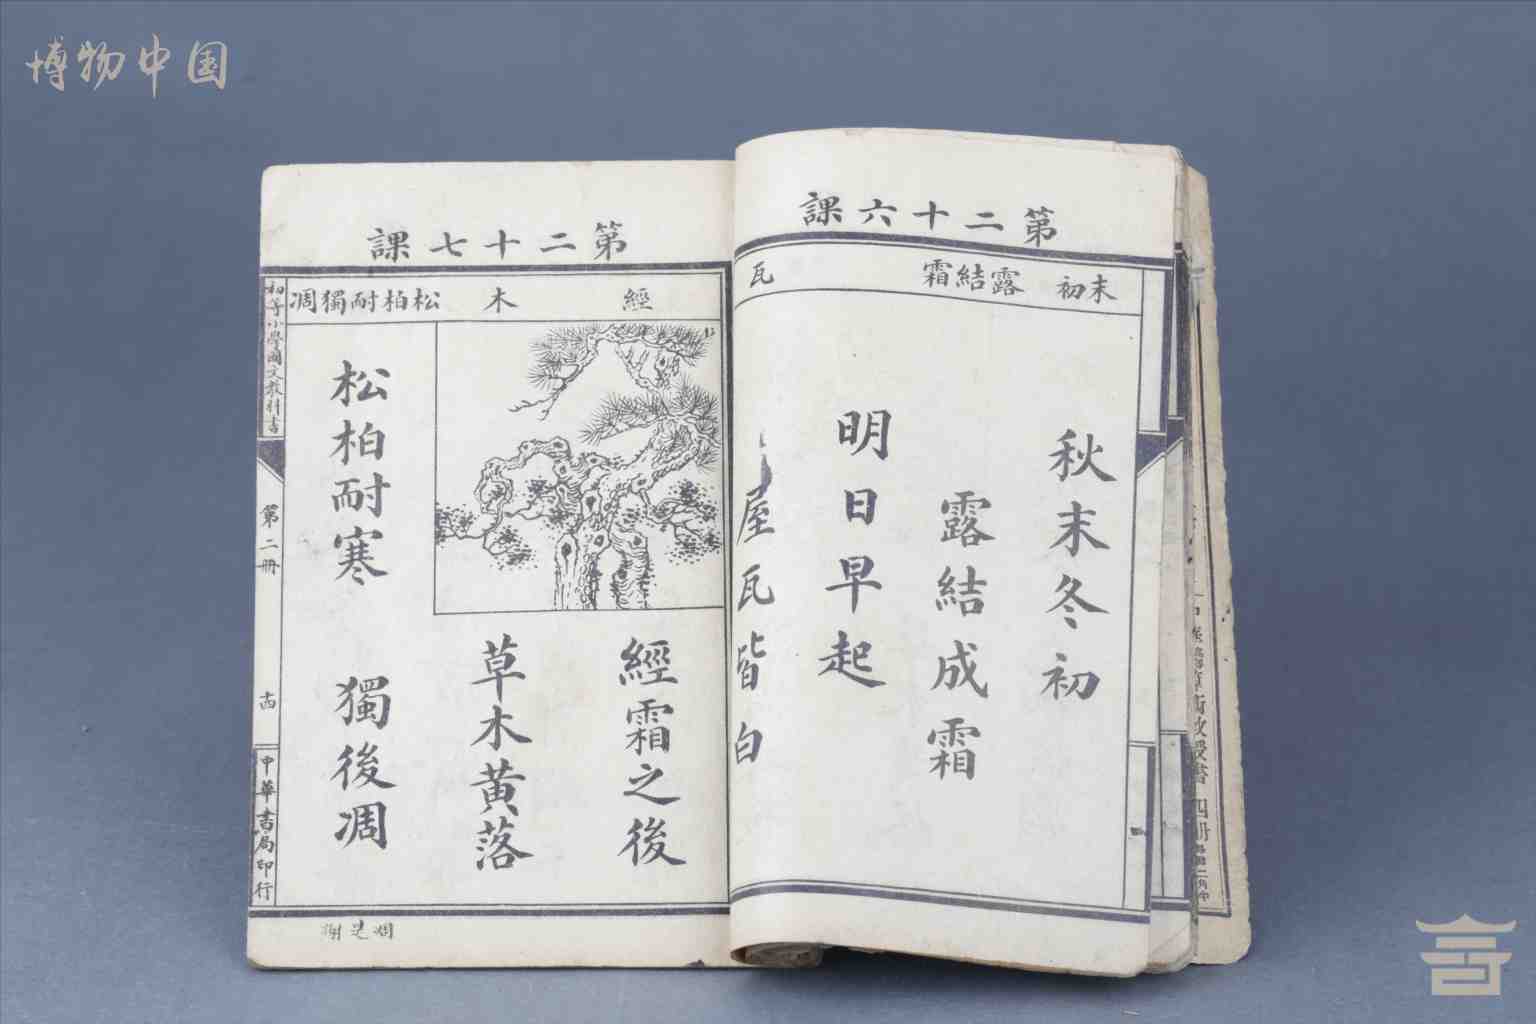 博物中国
第二十六課
末初
露結霜
瓦
秋末冬初
露結成霜
明日早起
屋瓦皆白
第二十七課
經
木
松柏耐獨凋
經霜之後
草木黃落
松柏耐寒
獨後凋
初等小學國文教科書
第二冊
十四
中華書局印行